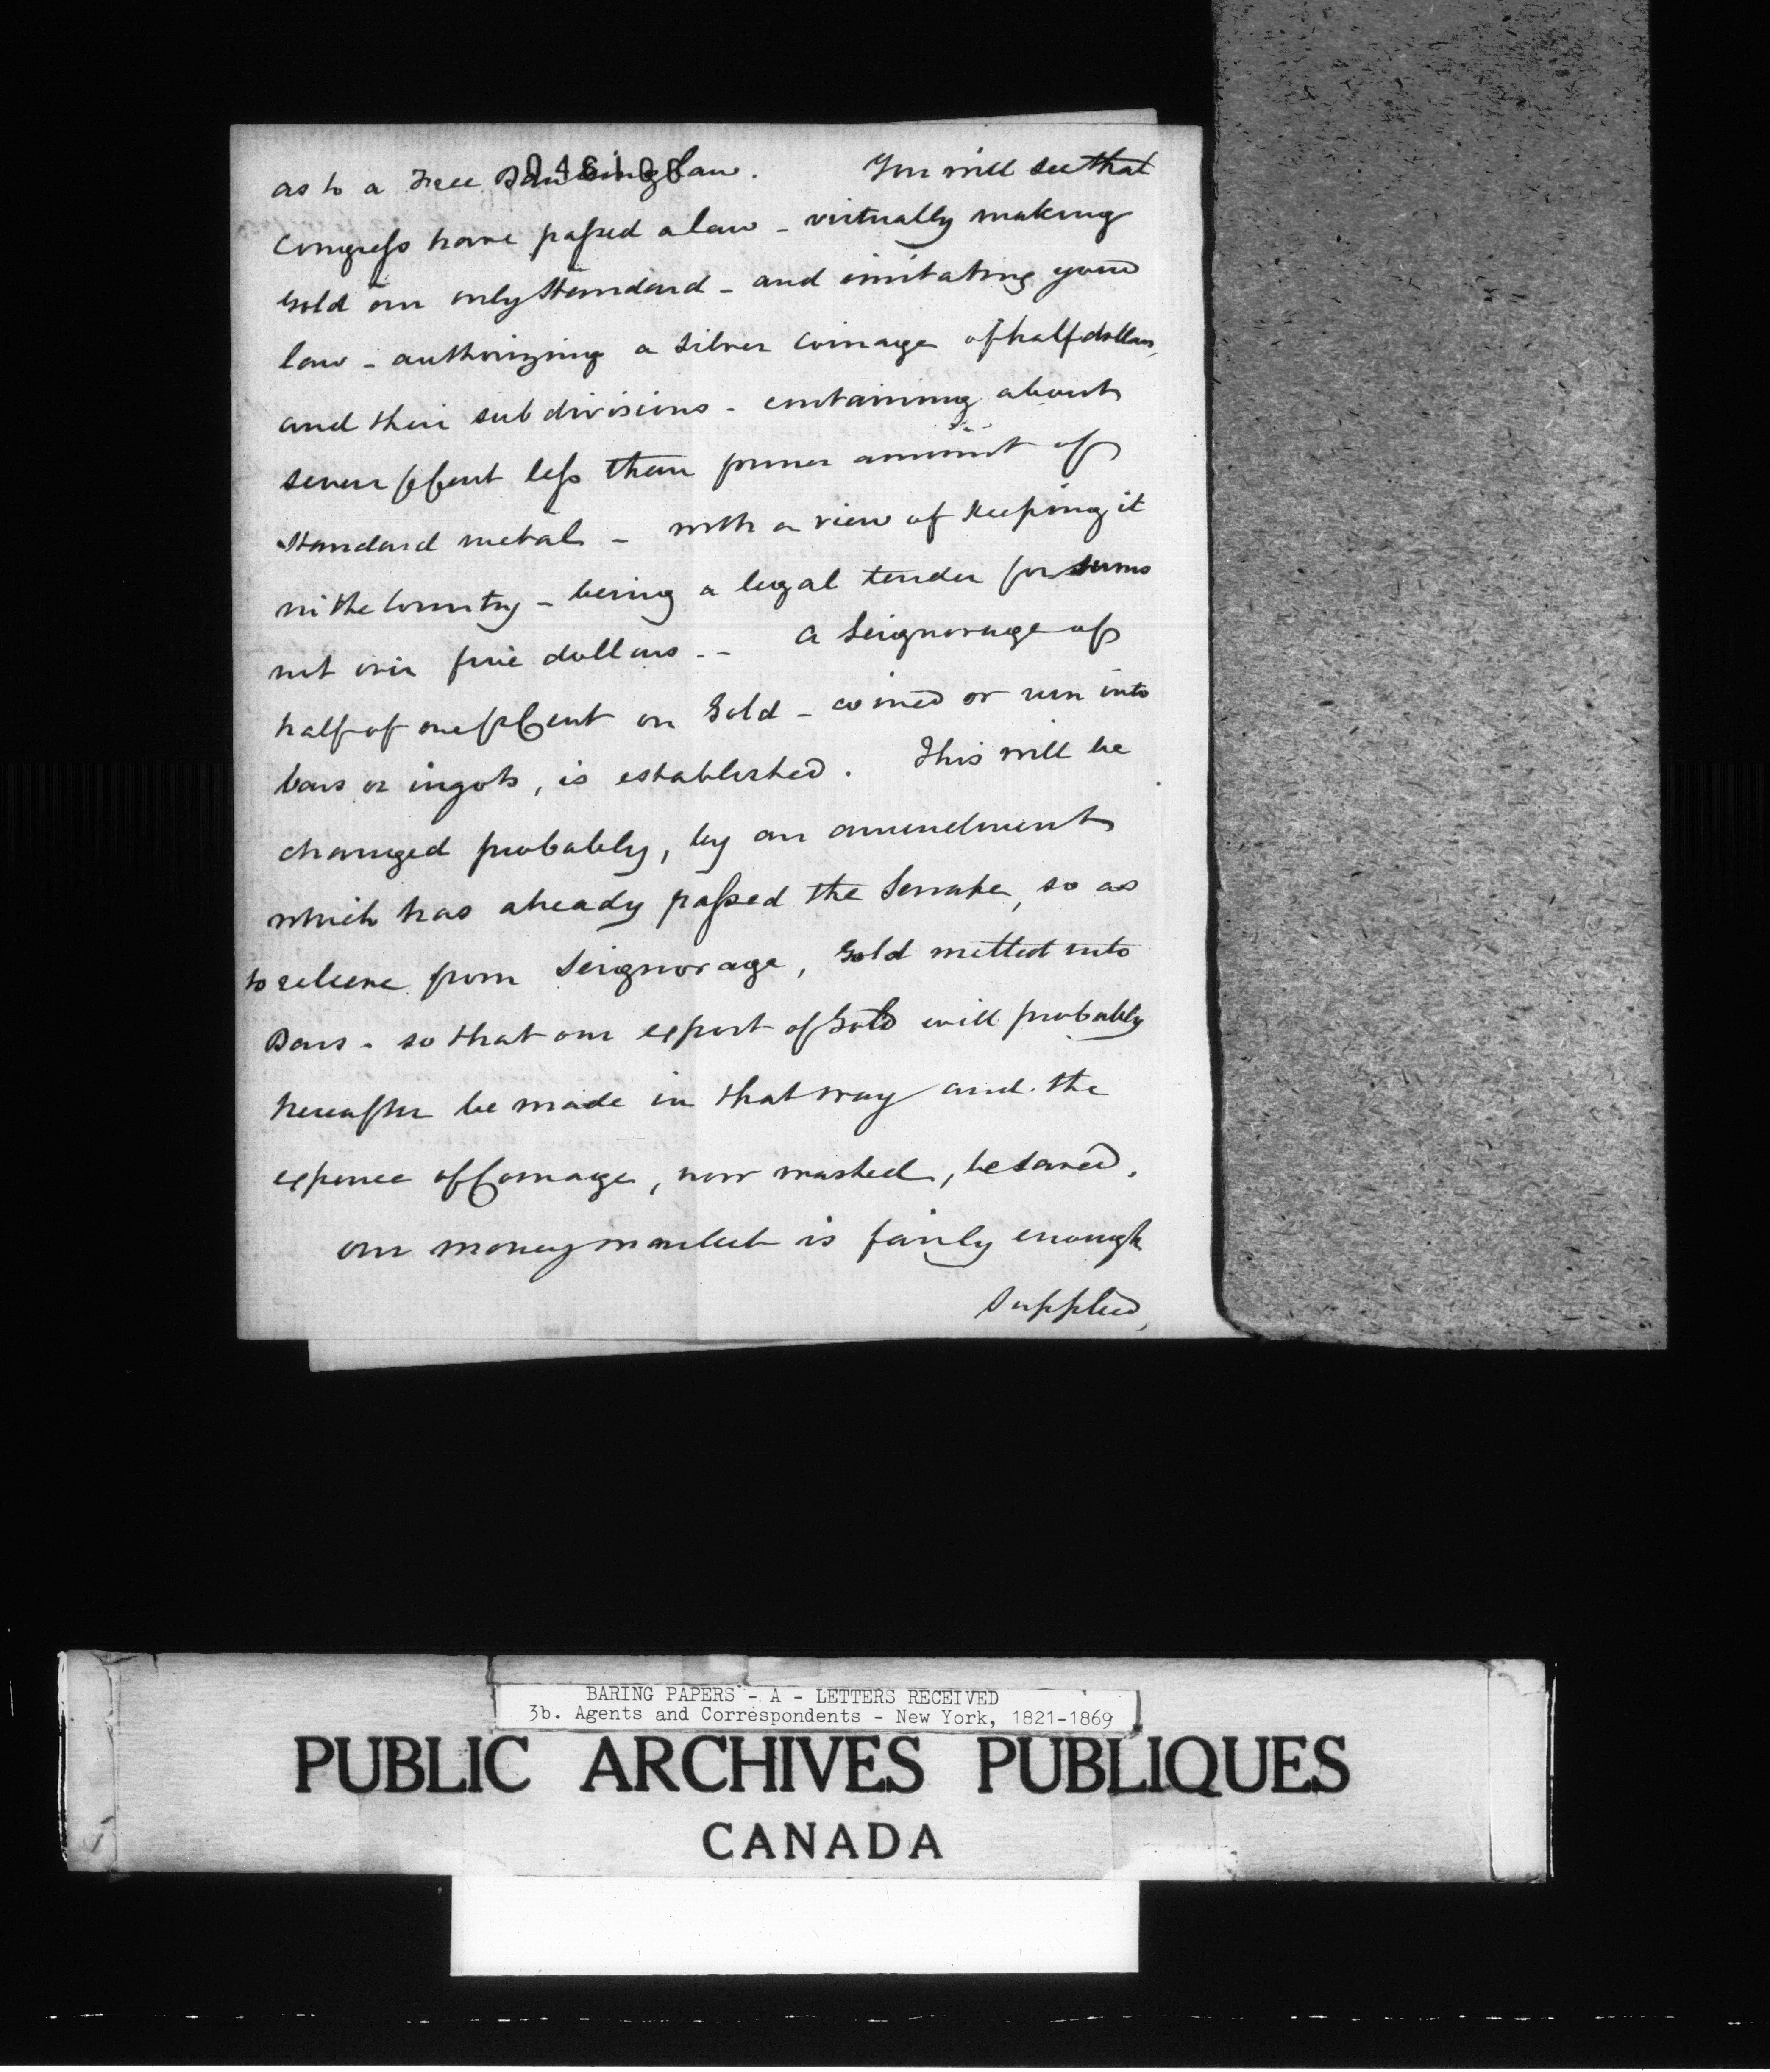 as to a Free Banking law. You will see that
Congress have passed a law - virtually making
Gold our only Standard - and imitating your
law - authorizing a Silver Coinage of half dollars,
and their subdivisions - containing about
seven p Cent less than former amount of
standard metal - with a view of keeping it
in the Country - being a legal tender for sums
not over five dollars -- A Seignorage of
half of one p Cent on Gold - coined or run into
bars or ingots, is established. This will be
changed probably, by an amendment
which has already passed the Senate, so as
to relieve from Seignorage, Gold melted into
Bars - so that our export of Gold will probably
hereafter be made in that way and the
expence of Coinage, now wasted, be saved.
our money market is fairly enough
supplied,
BARING PAPERS - A - LETTERS RECEIVED
3b. Agents and Correspondents - New York, 1821-1869
PUBLIC ARCHIVES PUBLIQUES
CANADA